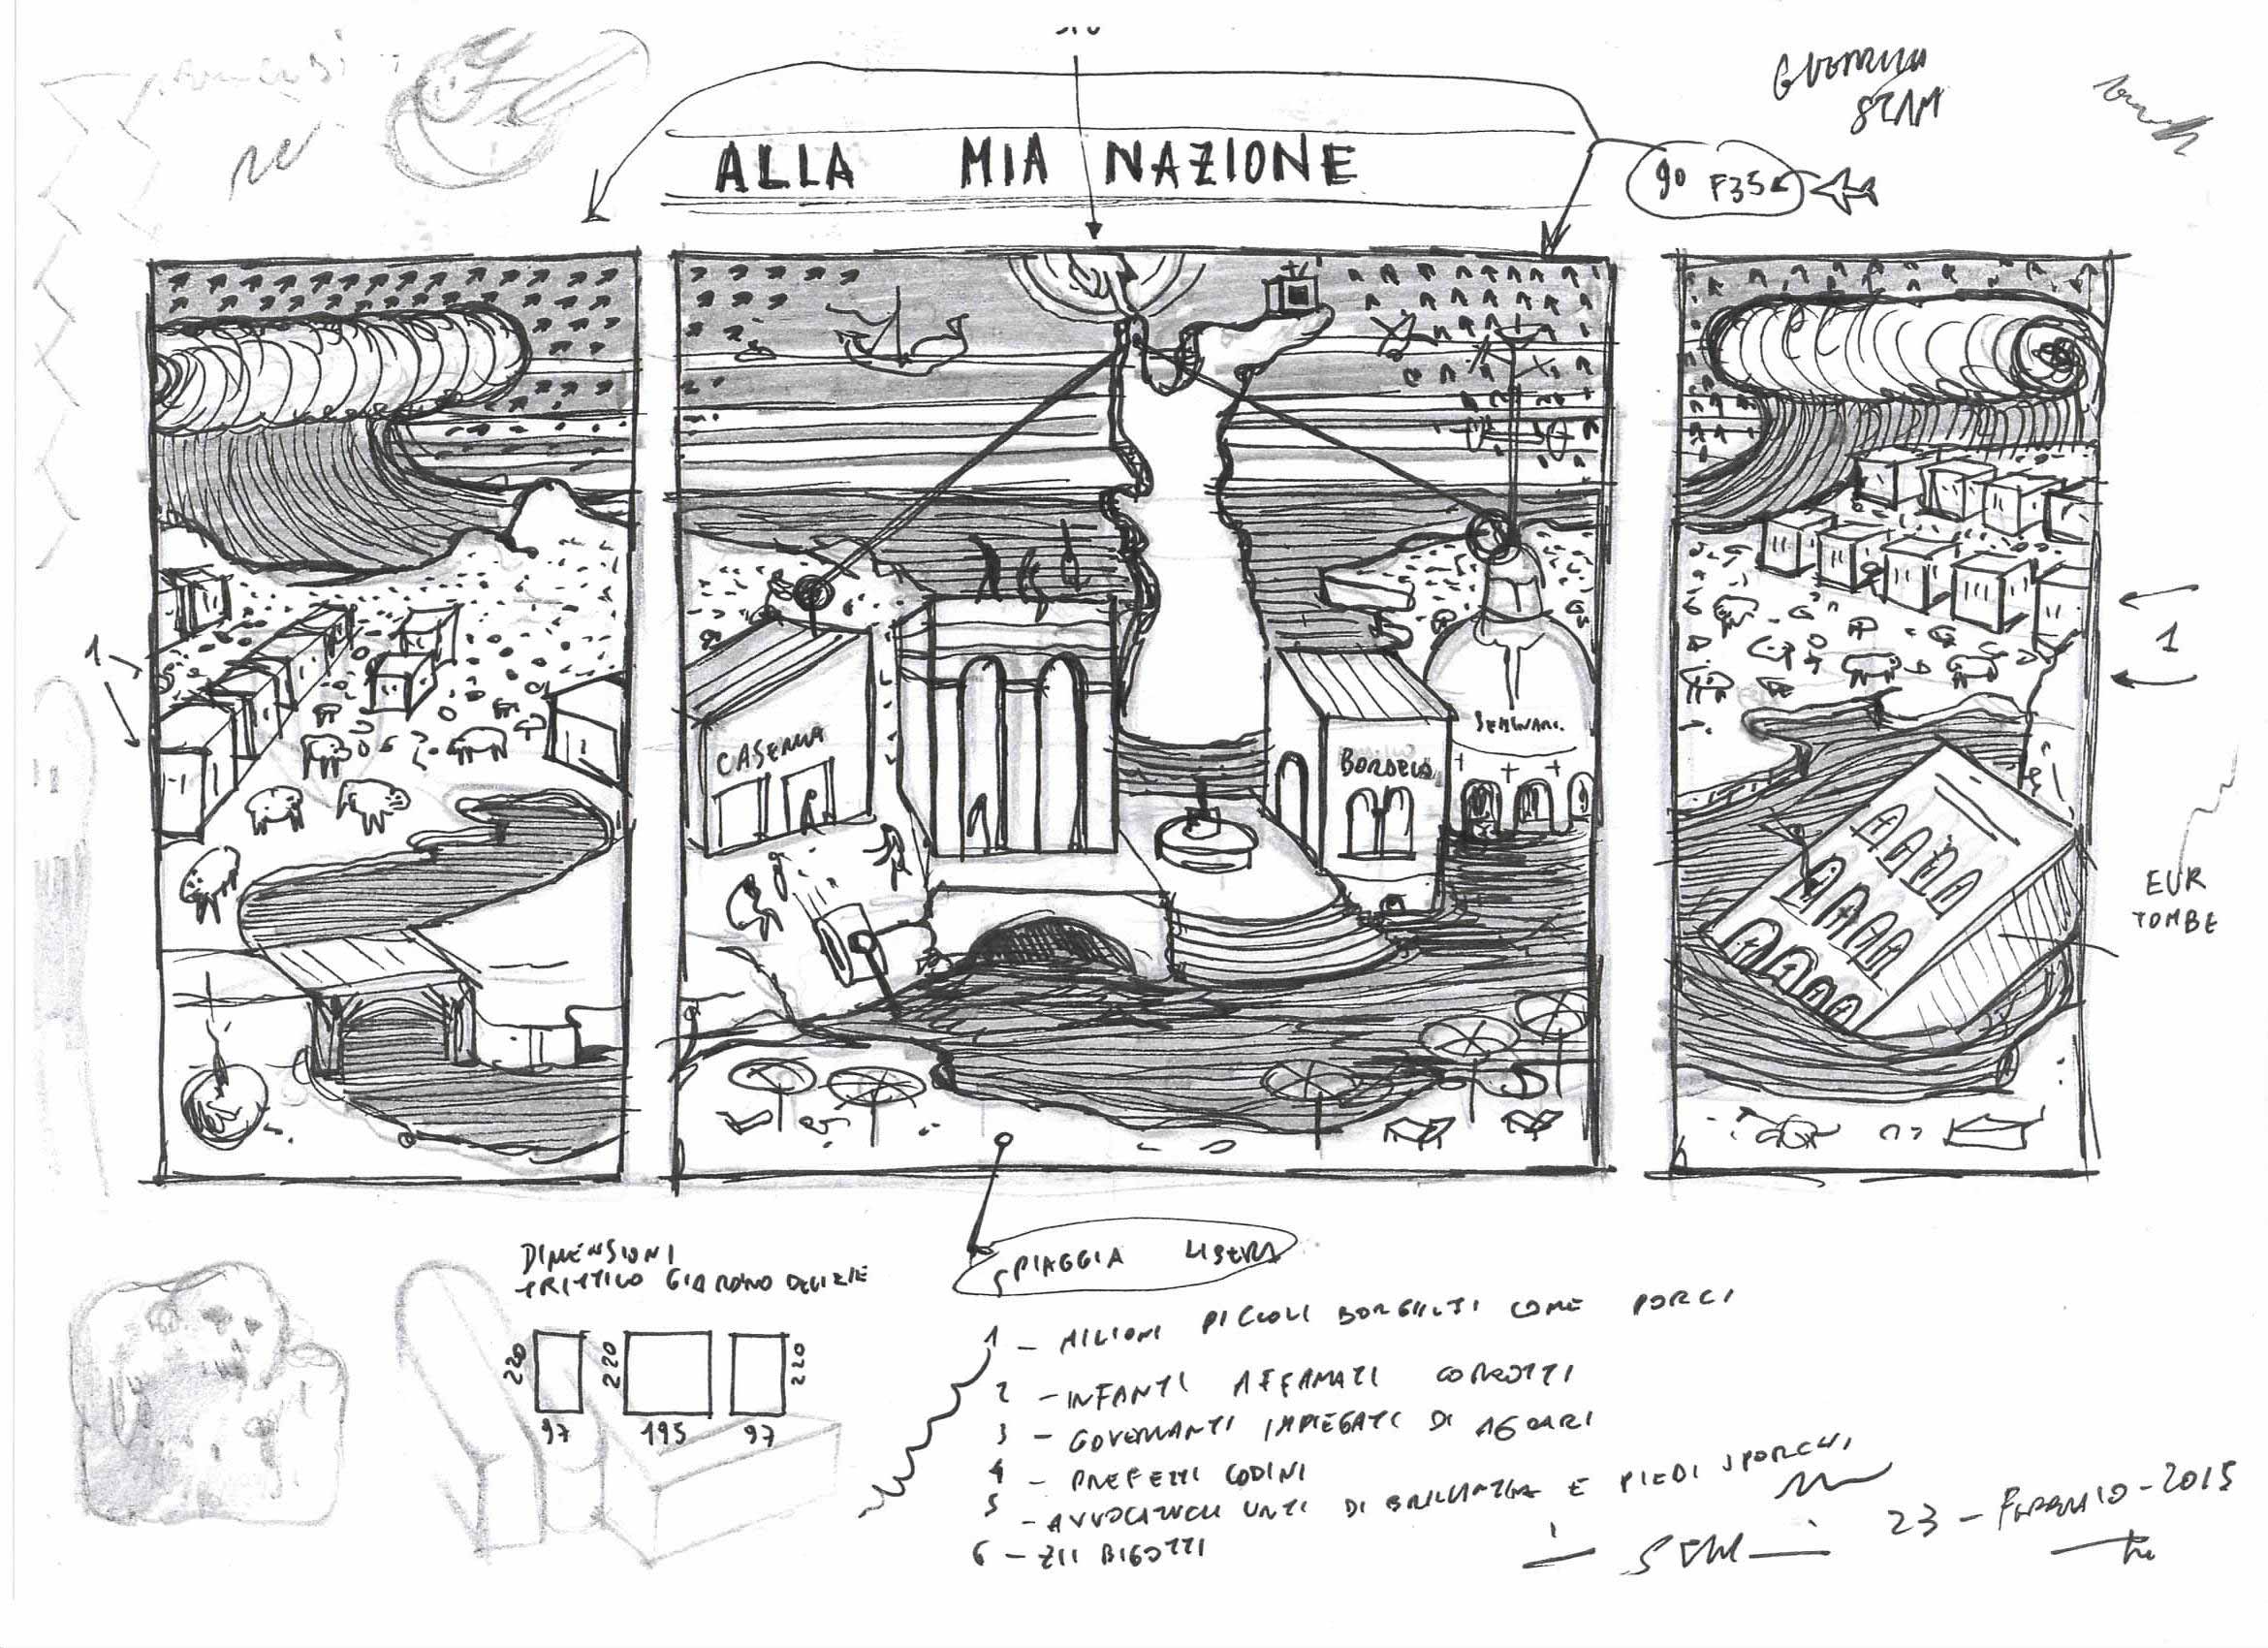 ALLA MIA NAZIONE
90 F35
CASERMA
BORDELLO
SEMINARI.
1
1
EUR
TOMBE
DIMENSIONI
TRITTICO GIARDINO DELIZIE
220 220 220
97 195 97
SPIAGGIA LIBERA
1 - MILIONI PICCOLI BORGHESI COME PORCI
2 - INFANTI AFFAMATI CORROTTI
3 - GOVERNANTI IMPIEGATI DI AGRARI
4 - PREFETTI CODINI
5 - AVVOCATUCOLI UNTI DI BRILLANTINA E PIEDI SPORCHI
6 - ZII BIGOTTI
23 - FEBBRAIO - 2015